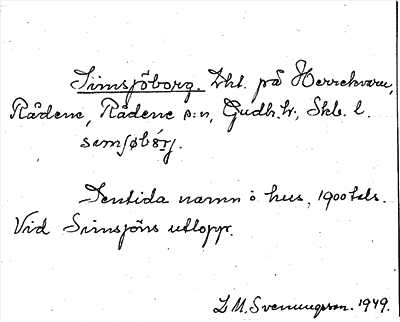 Simsjöborg. Lht. på Herrekvarn,
Rådene, Rådene s:n, Gudh. hr, Skb. l.
samsjöbórj.
Sentida namn å hus, 1900 tals.
Vid Simsjöns utlopp.
L M. Svenungsson. 1949.